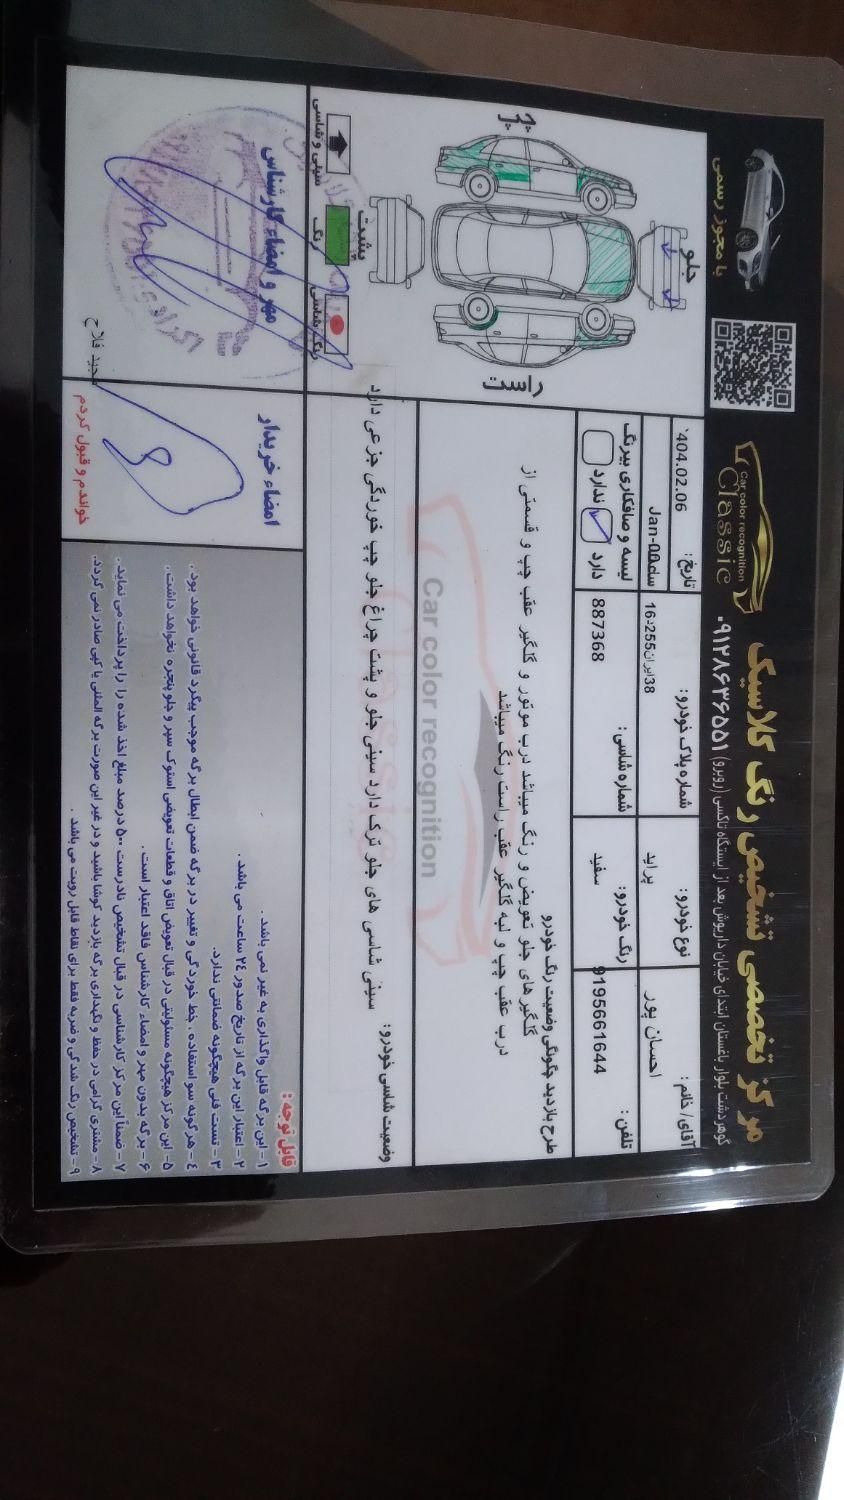 مرکز تخصصی تشخیص رنگ کلاسیک
گوهردشت بلوار باغستان ابتدای خیابان داریوش بعد از ایستگاه تاکسی (روبرو) ۰۹۱۲۸۶۳۶۵۵۱
Car color recognition
Classic
با مجوز رسمی
آقای/ خانم:
احسان پور
نوع خودرو:
پراید
شماره پلاک خودرو:
38ایران255د16
تاریخ:
404.02.06
ساعت:
Jan-00
تلفن:
9195661644
رنگ خودرو:
سفید
شماره شاسی:
887368
لیسه و صافکاری بیرنگ
دارد
ندارد
طرح بازدید چگونگی وضعیت رنگ خودرو
گلگیر های جلو تعویض و رنگ میباشد درب موتور و گلگیر عقب چپ و قسمتی از
درب عقب چپ و لبه گلگیر عقب راست رنگ میباشد
جلو
پشت
راست
چپ
Car color recognition
Classic
وضعیت شاسی خودرو:
سینی شاسی های جلو ترک دارد سینی جلو و پشت چراغ جلو چپ خوردگی جزعی دارد
سینی و شاسی
رنگ
رنگ شاسی
قابل توجه:
۱- این برگه قابل واگذاری به غیر نمی باشد.
۲- اعتبار این برگه از تاریخ صدور ۲۴ ساعت می باشد.
۳- تست فنی هیچگونه ضمانتی ندارد.
۴- هرگونه سو استفاده، خط خوردگی و تغییر در برگه ضمن ابطال برگه موجب پیگرد قانونی خواهد بود.
۵- این مرکز هیچگونه مسئولیتی در قبال تعویض اتاق و قطعات تعویضی استوک سپر و جلو پنجره نخواهد داشت.
۶- برگه بدون مهر و امضاء کارشناس فاقد اعتبار است.
۷- ضمناً این مرکز کارشناسی در قبال تشخیص نادرست ۵۰ درصد مبلغ اخذ شده را پرداخت می نماید.
۸- مشتری گرامی در حفظ و نگهداری برگه بازدید کوشا باشید و در غیر این صورت برگه المثنی یا کپی صادر نمی گردد.
۹- تشخیص رنگ شدگی و ضربه فقط برای نقاط قابل رویت می باشد.
امضاء خریدار
خواندم و قبول کردم
مهر و امضاء کارشناس
فلاح